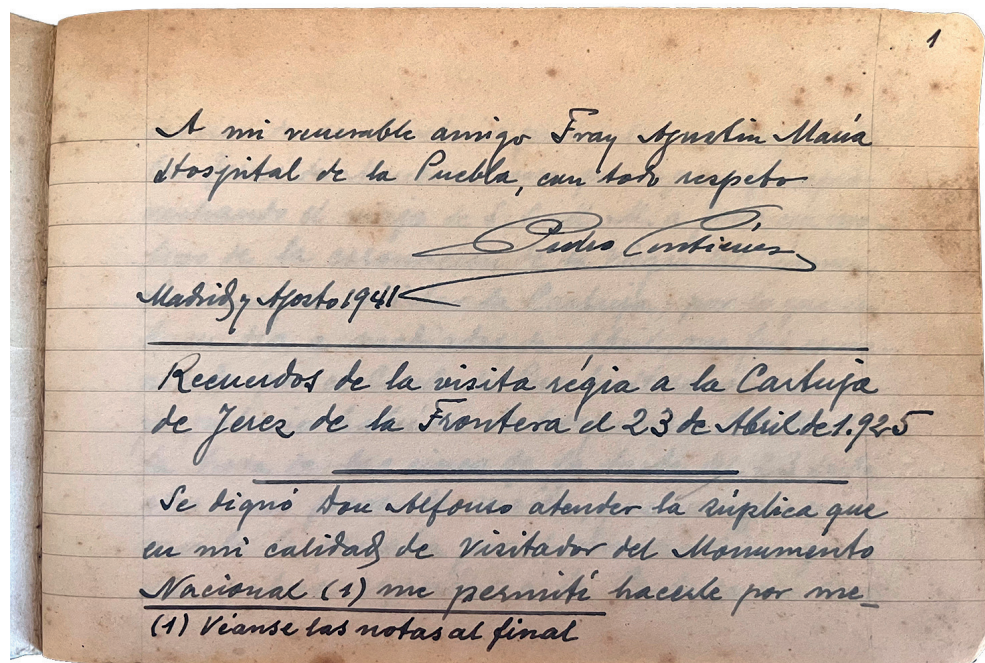 1
A mi venerable amigo Fray Agustin María
Hospital de la Puebla, con todo respeto
Pedro
Madrid y Agosto 1941
Recuerdos de la visita régia a la Cartuja
de Jerez de la Frontera el 23 de Abril de 1.925
Se dignó Don Alfonso atender la súplica que
en mi calidad de Visitador del Monumento
Nacional (1) me permití hacerle por me_
(1) Véanse las notas al final